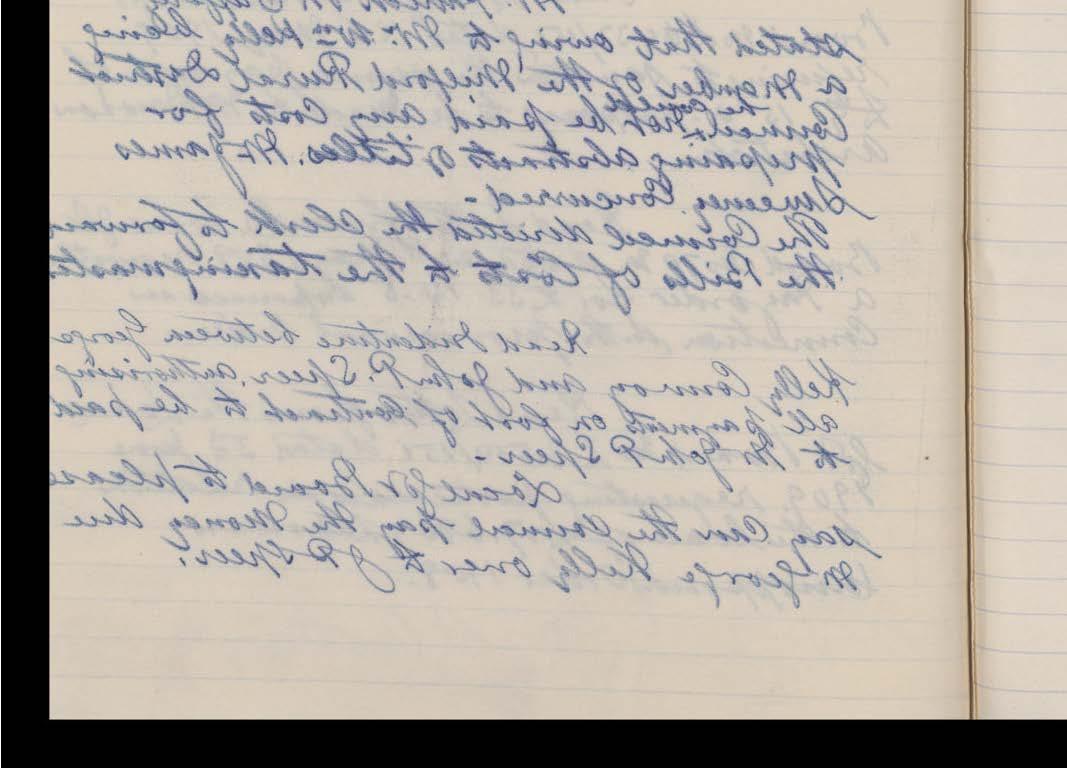 stated that owing to Mr. Wm Kelly being
a Member of the Milford Rural District
Council, he could not be paid any Costs for
preparing abstracts of titles. Mr James
Sweeney Concurred -
The Council directed the Clerk to forward
the Bills of Costs to the taxing master
Read Indenture between George
Kelly Convoy and John P. Speer, authorising
all payments on foot of Contract to be paid
to Mr John P Speer -
Local Gov Board to please
say Can the Council pay the Money due
Mr George Kelly over to J P Speer.